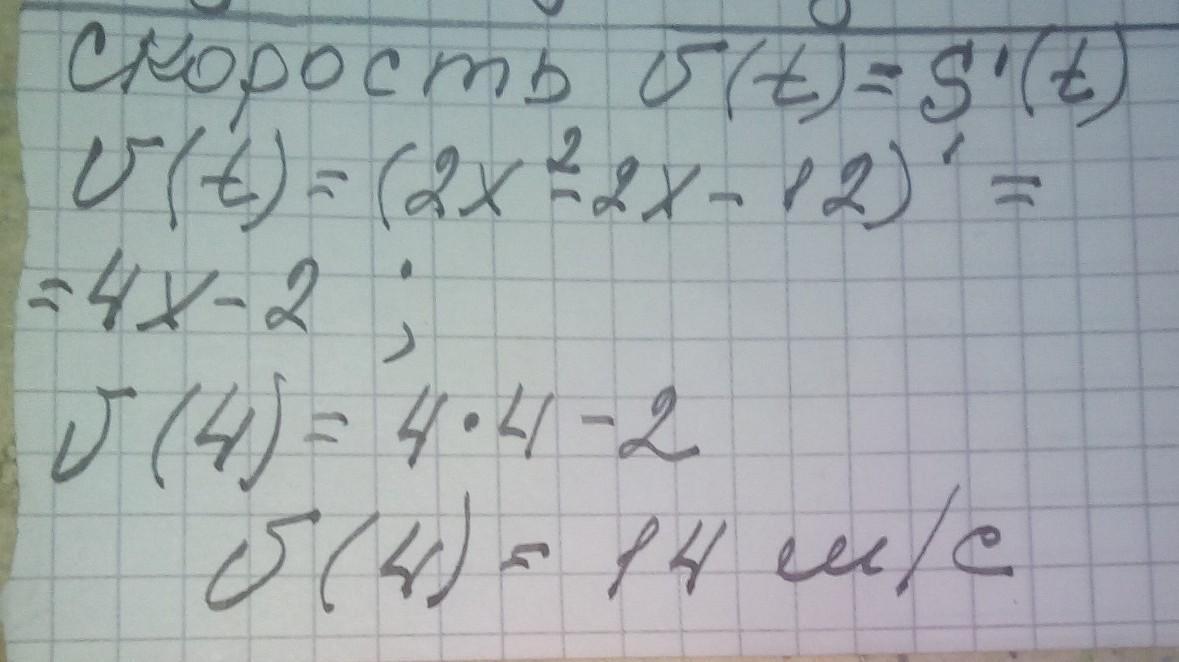 скорость v(t)=S'(t)
v(t)=(2x²-2x-12)'=
=4x-2 ;
v(4)=4·4-2
v(4)=14 м/с